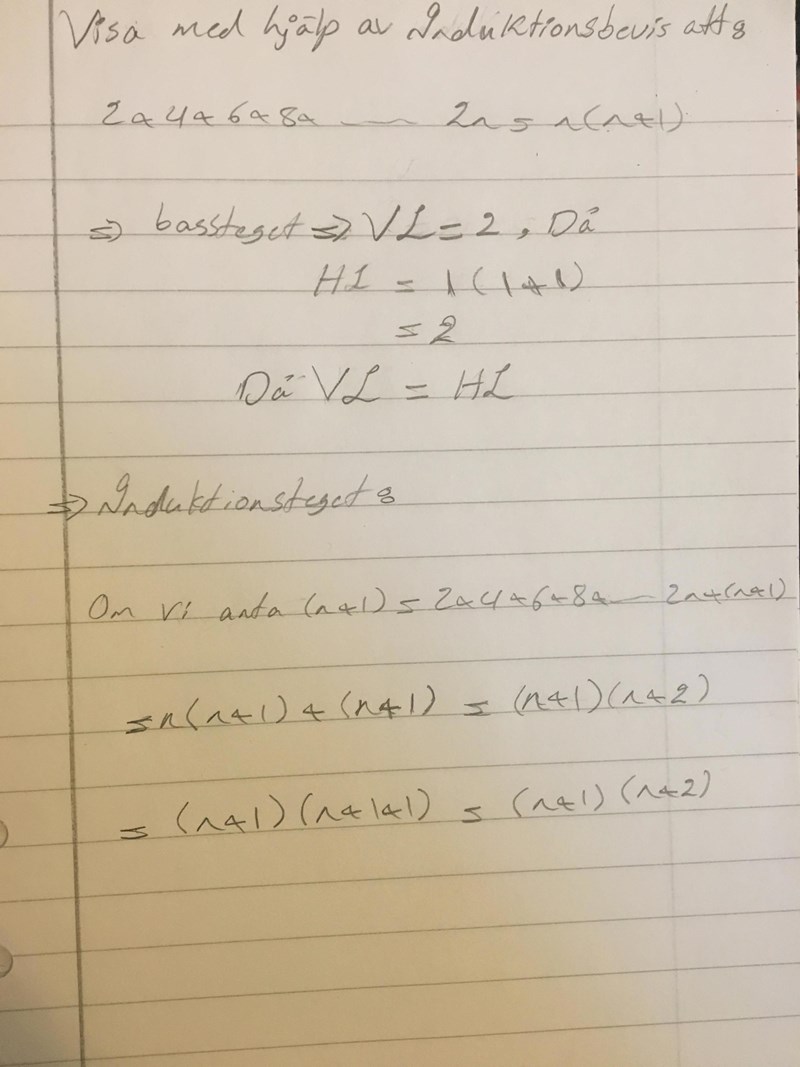 Visa med hjälp av Induktionsbevis att:
2+4+6+8+ — 2n = n(n+1)
=> bassteget => VL = 2, Då
HL = 1(1+1)
= 2
Då VL = HL
=> Induktionsteget:
Om vi anta (n+1) = 2+4+6+8+ — 2n+(n+1)
= n(n+1) + (n+1) = (n+1)(n+2)
= (n+1)(n+1+1) = (n+1)(n+2)